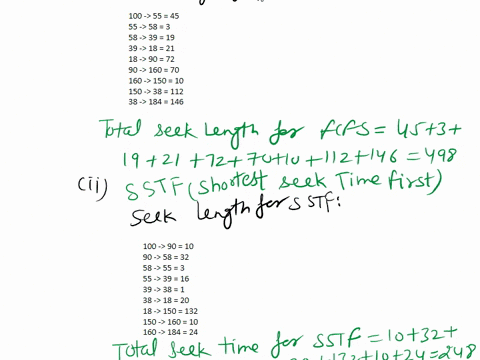 100 -> 55 = 45
55 -> 58 = 3
58 -> 39 = 19
39 -> 18 = 21
18 -> 90 = 72
90 -> 160 = 70
160 -> 150 = 10
150 -> 38 = 112
38 -> 184 = 146
Total seek Length for FCFS = 45+3+
19+21+72+70+10+112+146=498
(ii) SSTF (Shortest seek Time first)
Seek Length for SSTF:
100 -> 90 = 10
90 -> 58 = 32
58 -> 55 = 3
55 -> 39 = 16
39 -> 38 = 1
38 -> 18 = 20
18 -> 150 = 132
150 -> 160 = 10
160 -> 184 = 24
Total seek time for SSTF = 10+32+
+132+10+24=248